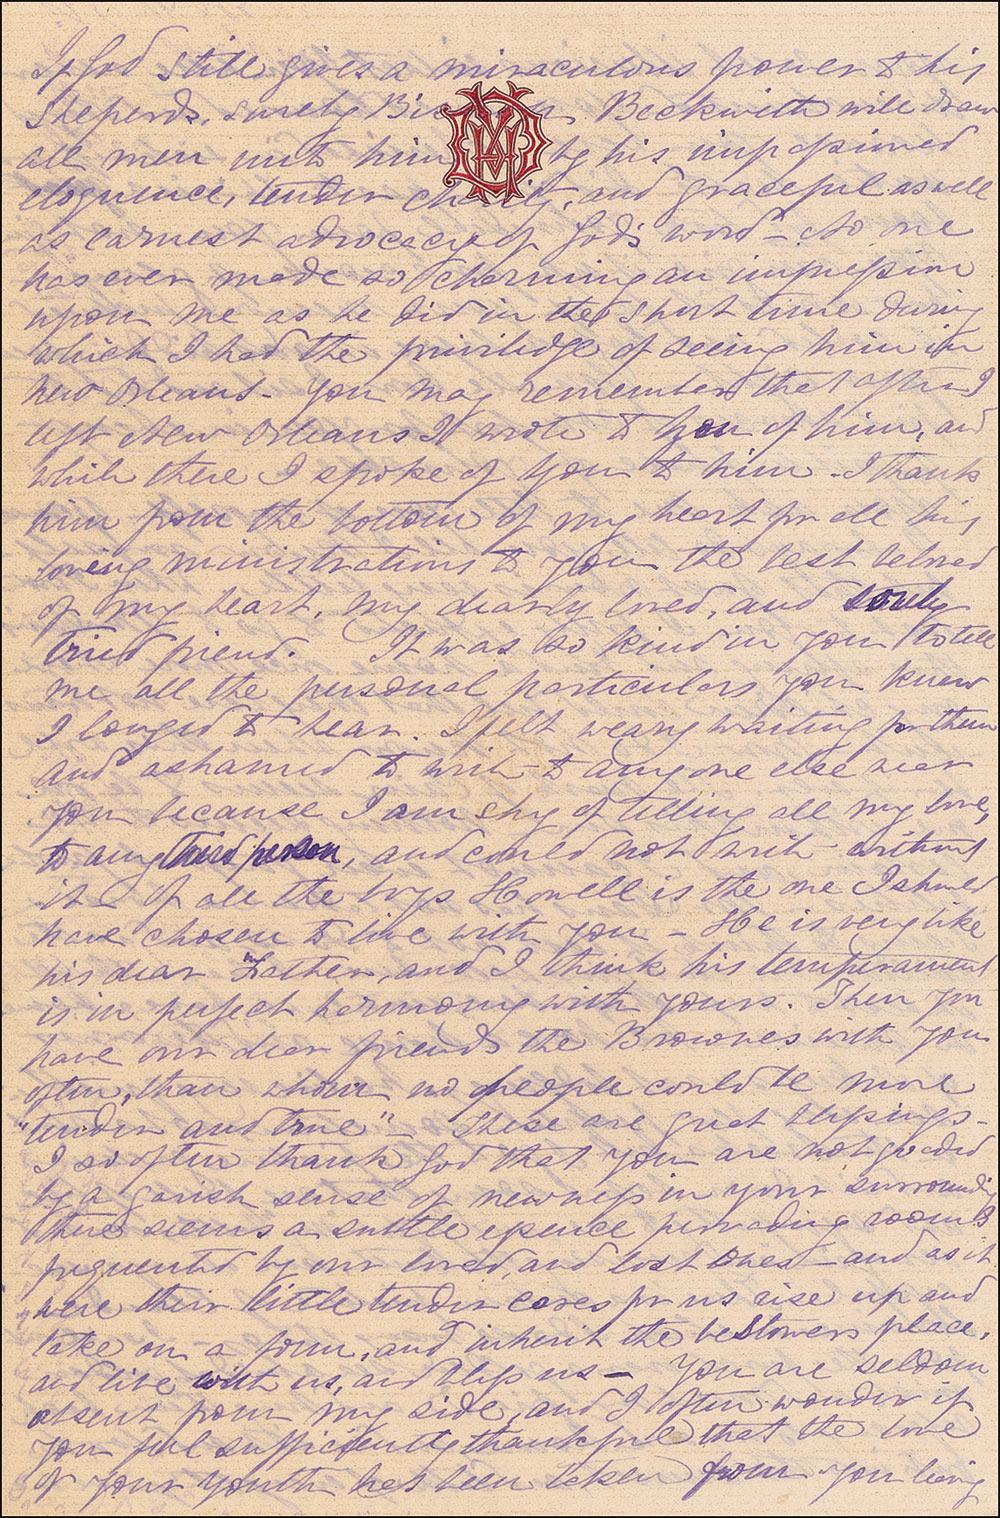 If God still gives a miraculous power to his
Sheperds, surely Beckwith will draw
all men unto him by his impassioned
eloquence, tender charity, and graceful as well
as earnest advocacy of God's word — No one
has ever made so charming an impression
upon me as he did in the short time during
which I had the priviledge of seeing him in
New Orleans — You may remember that after I
left New Orleans I wrote to you of him, and
while there I spoke of you to him — I thank
him from the bottom of my heart for all his
loving ministrations to you the best beloved
of my heart, my dearly loved, and sorely
tried friend. It was so kind in you to tell
me all the personal particulars you knew
I longed to hear. I felt weary waiting for them
and ashamed to write to anyone else near
you because I am shy of telling all my love,
to any third person, and could not write without
it — Of all the boys Howell is the one I should
have chosen to live with you — He is very like
his dear Father, and I think his temperament
is in perfect harmony with yours. Then you
have our dear friends the Brownes with you
often, than whom no people could be more
"tender and true" — These are great blessings —
I so often thank God that you are not goaded
by a garish sense of newness in your surroundings
there seems a subtle essence pervading rooms
frequented by our loved, and lost ones — and as it
were their little tender cares for us rise up and
take on a form, and inherit the bestowers place,
and live with us, and bless us — You are seldom
absent from my side, and I often wonder if
you feel sufficiently thankful that the love
of your youth has been taken from you being